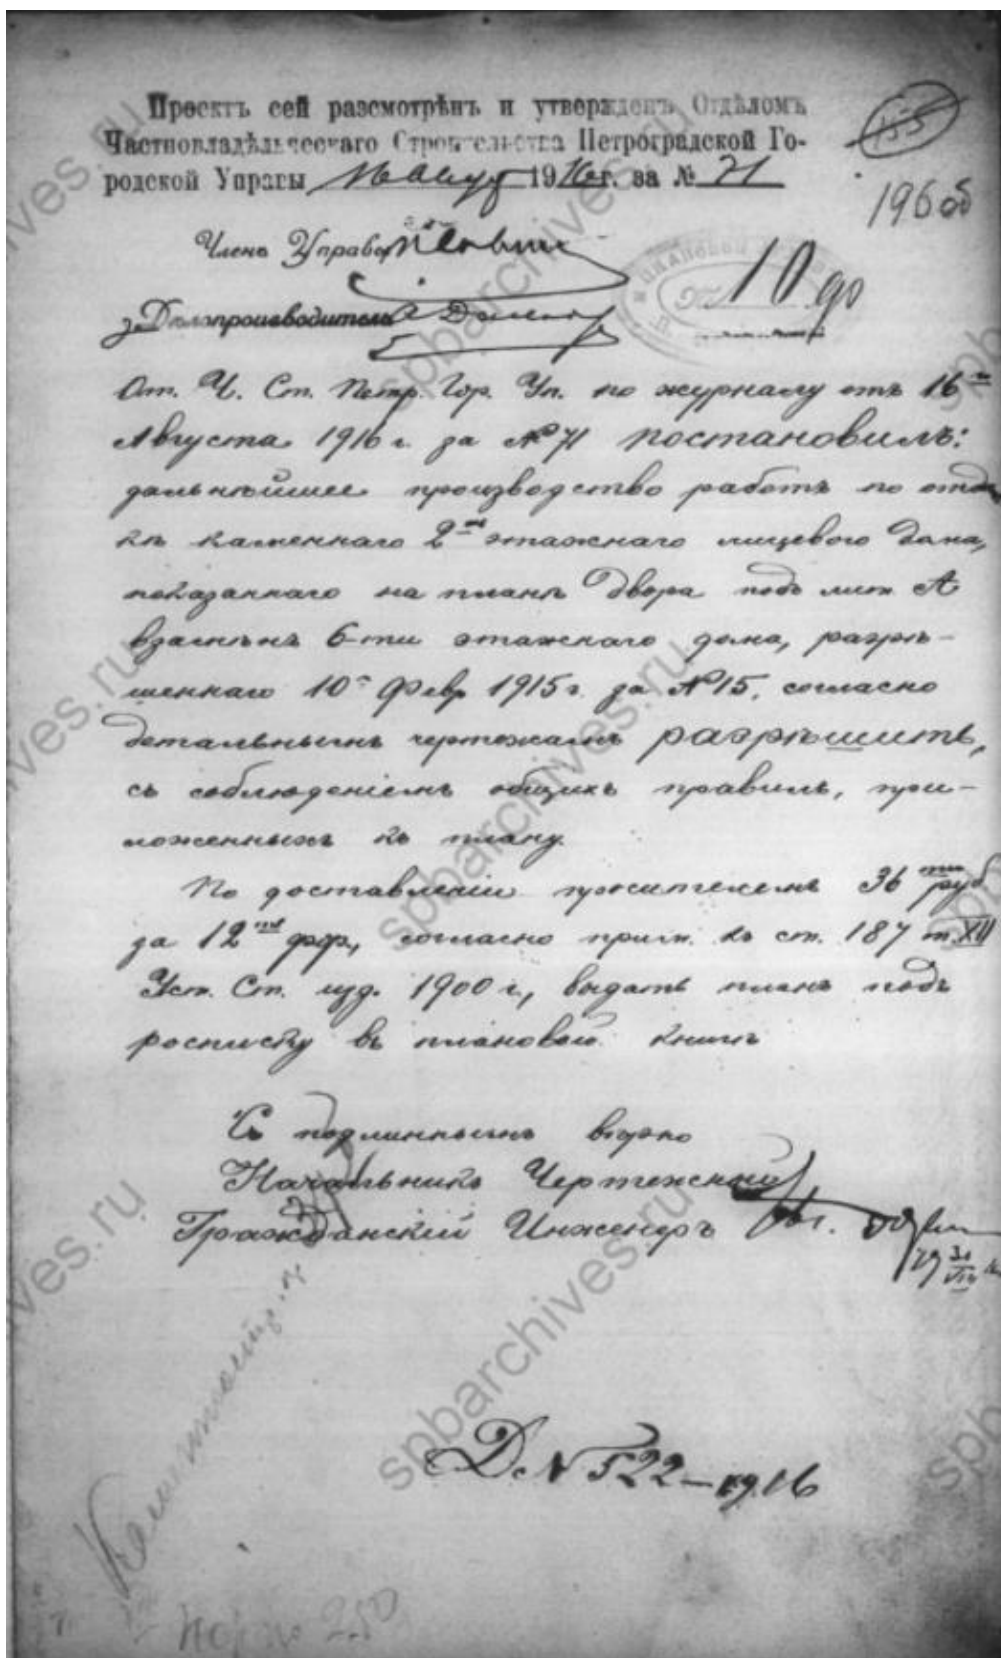 Проектъ сей разсмотрѣнъ и утвержденъ Отдѣломъ
Частновладѣльческаго Строительства Петроградской Го-
родской Управы 16 Авгус 1916 г. за № 71
155
196 об
Членъ Управы
Дѣлопроизводитель
10 др
От. Ч. Ст. Петр. Гор. Уп. по журналу отъ 16го
Августа 1916 г. за № 71 постановилъ:
дальнѣйшее производство работъ по отдѣл
кѣ каменнаго 2хъ этажнаго лицевого дома,
показаннаго на планѣ двора подъ лит. А
взамѣнъ 6-ти этажнаго дома, разрѣ-
шеннаго 10го Февр. 1915 г. за № 15, согласно
детальнымъ чертежамъ разрѣшить,
съ соблюденіемъ общихъ правилъ, при-
ложенныхъ къ плану.
По доставленіи просителемъ 36ти руб
за 12ть фор., согласно прим. къ ст. 187 т. XII
Уст. Ст. изд. 1900 г., выдать планъ подъ
росписку въ плановой книгѣ
Съ подлиннымъ вѣрно
Начальникъ Чертежной
Гражданскій Инженеръ
Д. № 522 – 1916
№ 250
spbarchives.ru